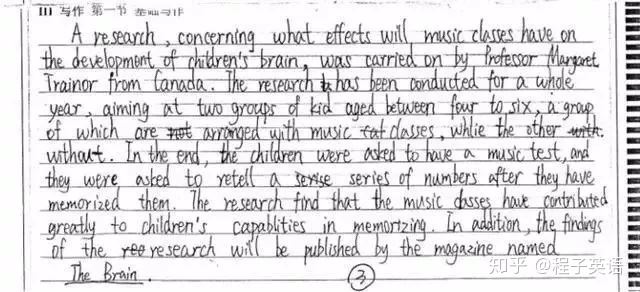 III 写作 第一节 基础写作
A research, concerning what effects will music classes have on
the development of children's brain, was carried on by Professor Margaret
Trainor from Canada. The research has been conducted for a whole
year, aiming at two groups of kid aged between four to six, a group
of which are not arranged with music classes, whlie the other with.
without. In the end, the children were asked to have a music test, and
they were asked to retell a serise series of numbers after they have
memorized them. The research find that the music classes have contributed
greatly to children's capablities in memortzing. In addition, the findings
of the research will be published by the magazine named
The Brain.
3
知乎 @程子英语